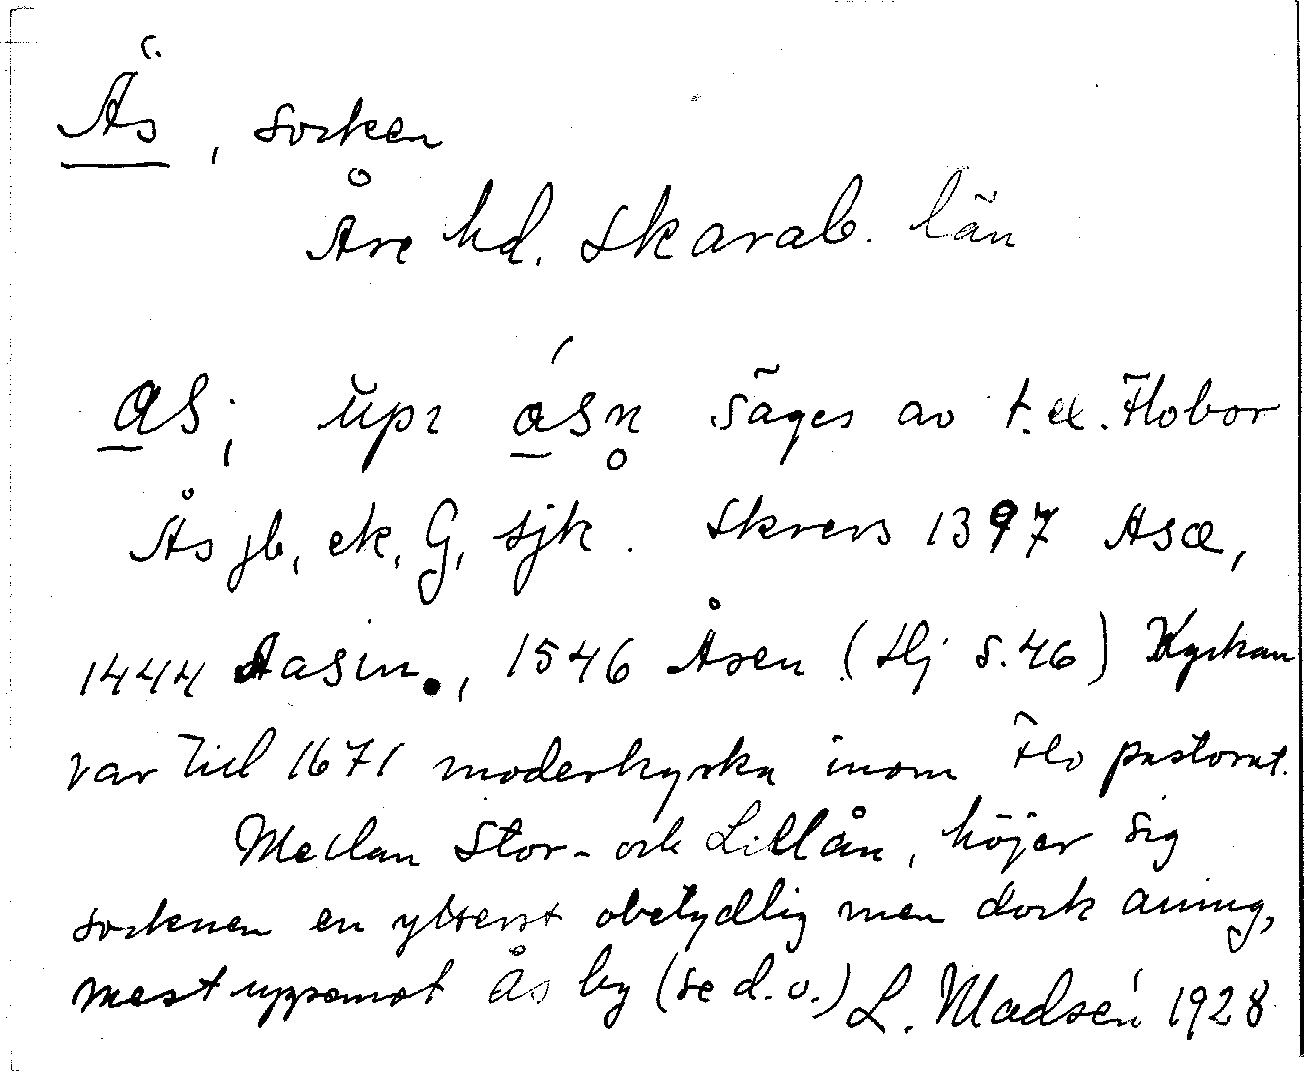 Ås, socken
Åre hd. Skarab. län
as; ŭpɪ ásn̥ säges av t.ex. Flobor
Ås jb, ek, G, sjk. Skrevs 1397 Asæ,
1444 Aasin., 1546 Åsen (Hj s.46) Kyrkan
var till 1671 moderkyrka inom Flo pastorat.
Mellan Stor- och Lillån, höjer sig
socknen en ytterst obetydlig men dock aning,
mest uppemot Ås by (se d.o.) L. Madsén 1928